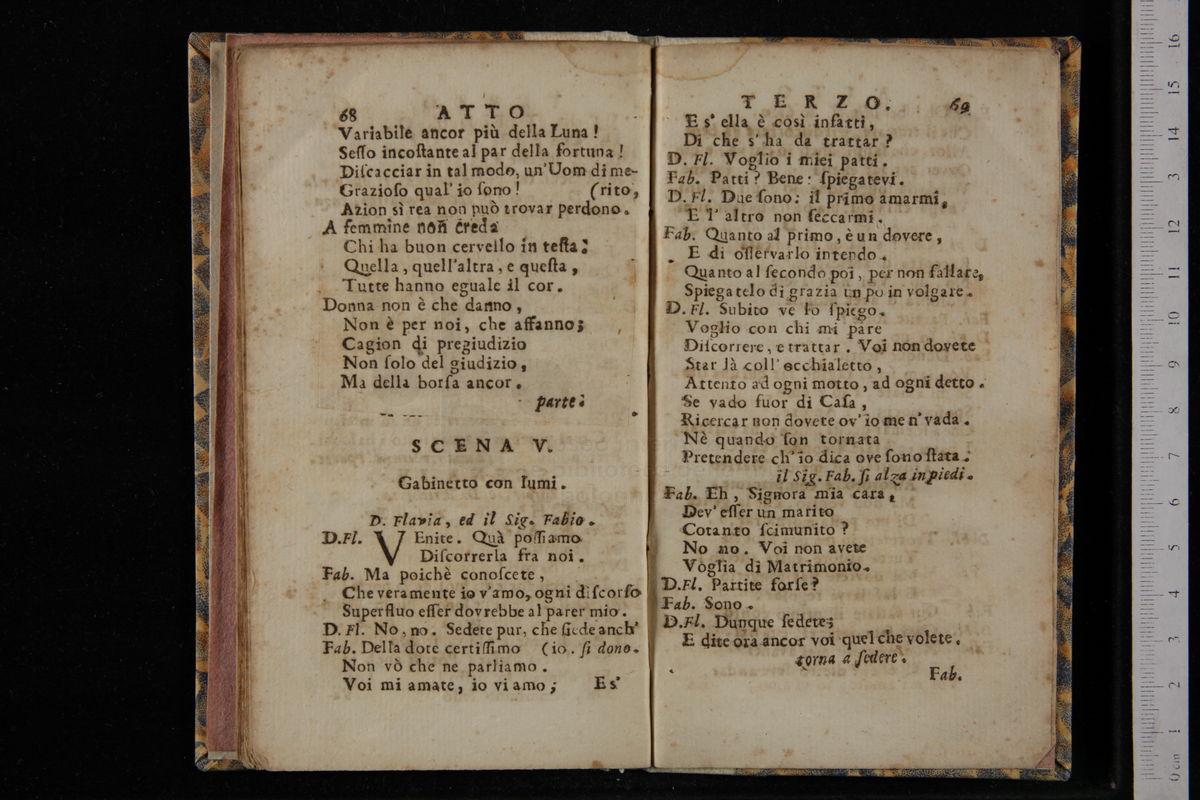 68 ATTO
Variabile ancor più della Luna!
Seſſo incoſtante al par della fortuna!
Diſcacciar in tal modo, un'Uom di me-
Grazioſo qual' io ſono! (rito,
Azion sì rea non può trovar perdono.
A femmine non creda
Chi ha buon cervello in teſta:
Quella, quell'altra, e queſta,
Tutte hanno eguale il cor.
Donna non è che danno,
Non è per noi, che affanno;
Cagion di pregiudizio
Non ſolo del giudizio,
Ma della borſa ancor.
parte.
SCENA V.
Gabinetto con lumi.
D. Flavia, ed il Sig. Fabio.
D.Fl. VEnite. Quà poſſiamo
Diſcorrerla fra noi.
Fab. Ma poichè conoſcete,
Che veramente io v'amo, ogni diſcorſo
Superfluo eſſer dovrebbe al parer mio.
D. Fl. No, no. Sedete pur, che ſiede anch'
Fab. Della dote certiſſimo (io. ſi dono.
Non vò che ne parliamo.
Voi mi amate, io vi amo; E s'
TERZO. 69
E s' ella è così infatti,
Di che s' ha da trattar?
D. Fl. Voglio i miei patti.
Fab. Patti? Bene: ſpiegatevi.
D. Fl. Due ſono: il primo amarmi,
E l' altro non ſeccarmi.
Fab. Quanto al primo, è un dovere,
E di oſſervarlo intendo.
Quanto al ſecondo poi, per non fallare,
Spiegatelo di grazia un po in volgare.
D. Fl. Subito ve lo ſpiego.
Voglio con chi mi pare
Diſcorrere, e trattar. Voi non dovete
Star là coll' occhialetto,
Attento ad ogni motto, ad ogni detto.
Se vado fuor di Caſa,
Ricercar non dovete ov' io me n' vada.
Nè quando ſon tornata
Pretendere ch' io dica ove ſono ſtata.
il Sig. Fab. ſi alza in piedi.
Fab. Eh, Signora mia cara,
Dev' eſſer un marito
Cotanto ſcimunito?
No no. Voi non avete
Voglia di Matrimonio.
D.Fl. Partite forſe?
Fab. Sono.
D.Fl. Dunque ſedete;
E dite ora ancor voi quel che volete.
torna a ſedere.
Fab.